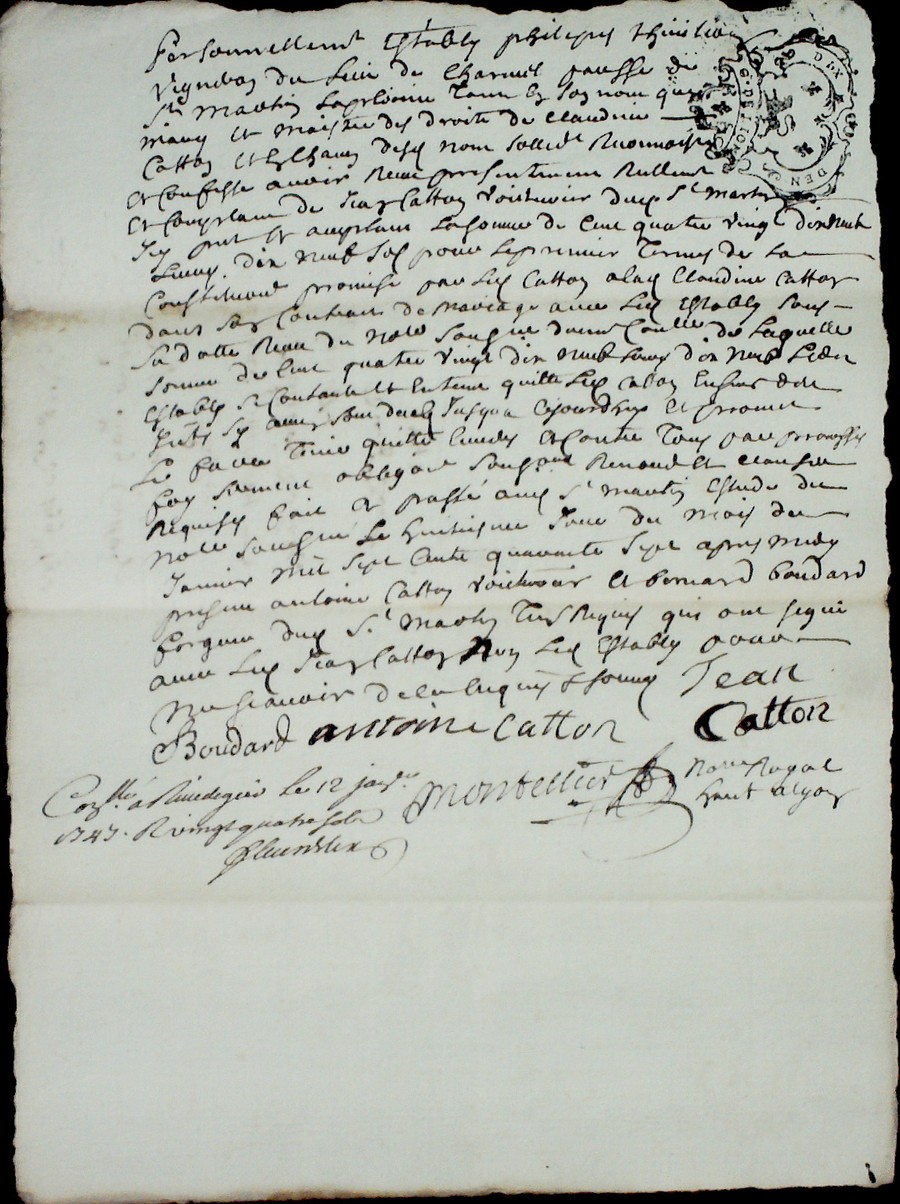 Personnellement Estably philipes
vigneron du Lieu de Charmel paroisse de
St Martin Laplaine Tant En son nom que
mary et Maistre des droits de Claudine
Catton Et En chacun desd noms sollid. Reconnoist
et Confesse avoir Receu presentement Rellement
Et Comptant de Jean Catton voiturier dud St Martin
Icy pnt Et acceptant La somme de Cent quatre vingt dix neuf
Livres dix neuf sols pour Le premier Terme de La
Constitution promise par Led Catton alad Claudine Catton
dans son Contract de Mariage avec Led Estably sous
Sa datte Receu du Nore Soussigné de Laquelle
Somme de Cent quatre vingt dix neuf Livres dix neuf
Estably se Contante Et en tient quitte Led Catton Ensemble des
Jusqua ajourdhuy Et promet
Le faire Tenir quitte Envers Et Contre Tous par promesses
foy serment obligaon Renonc Et Clauses
Requises fait Et passé aud St Martin Estude du
Nore Soussigné Le huitiesme Jour du Mois de
Janvier Mil Sept Cents quarante Sept apres midy
presens antoine Catton voiturier Et bernard boudard
forgeur dud St Martin Tes Requis qui ont signé
avec Led Jean Catton Non Led Estably pour
Ne Scavoir de Ce Enquis & sommé Jean
Boudard antoine Catton Catton
Conllé a Rivedegier Le 12 janr Montellier Nore Royal
1747. R vingt quatre sols haut Lyon